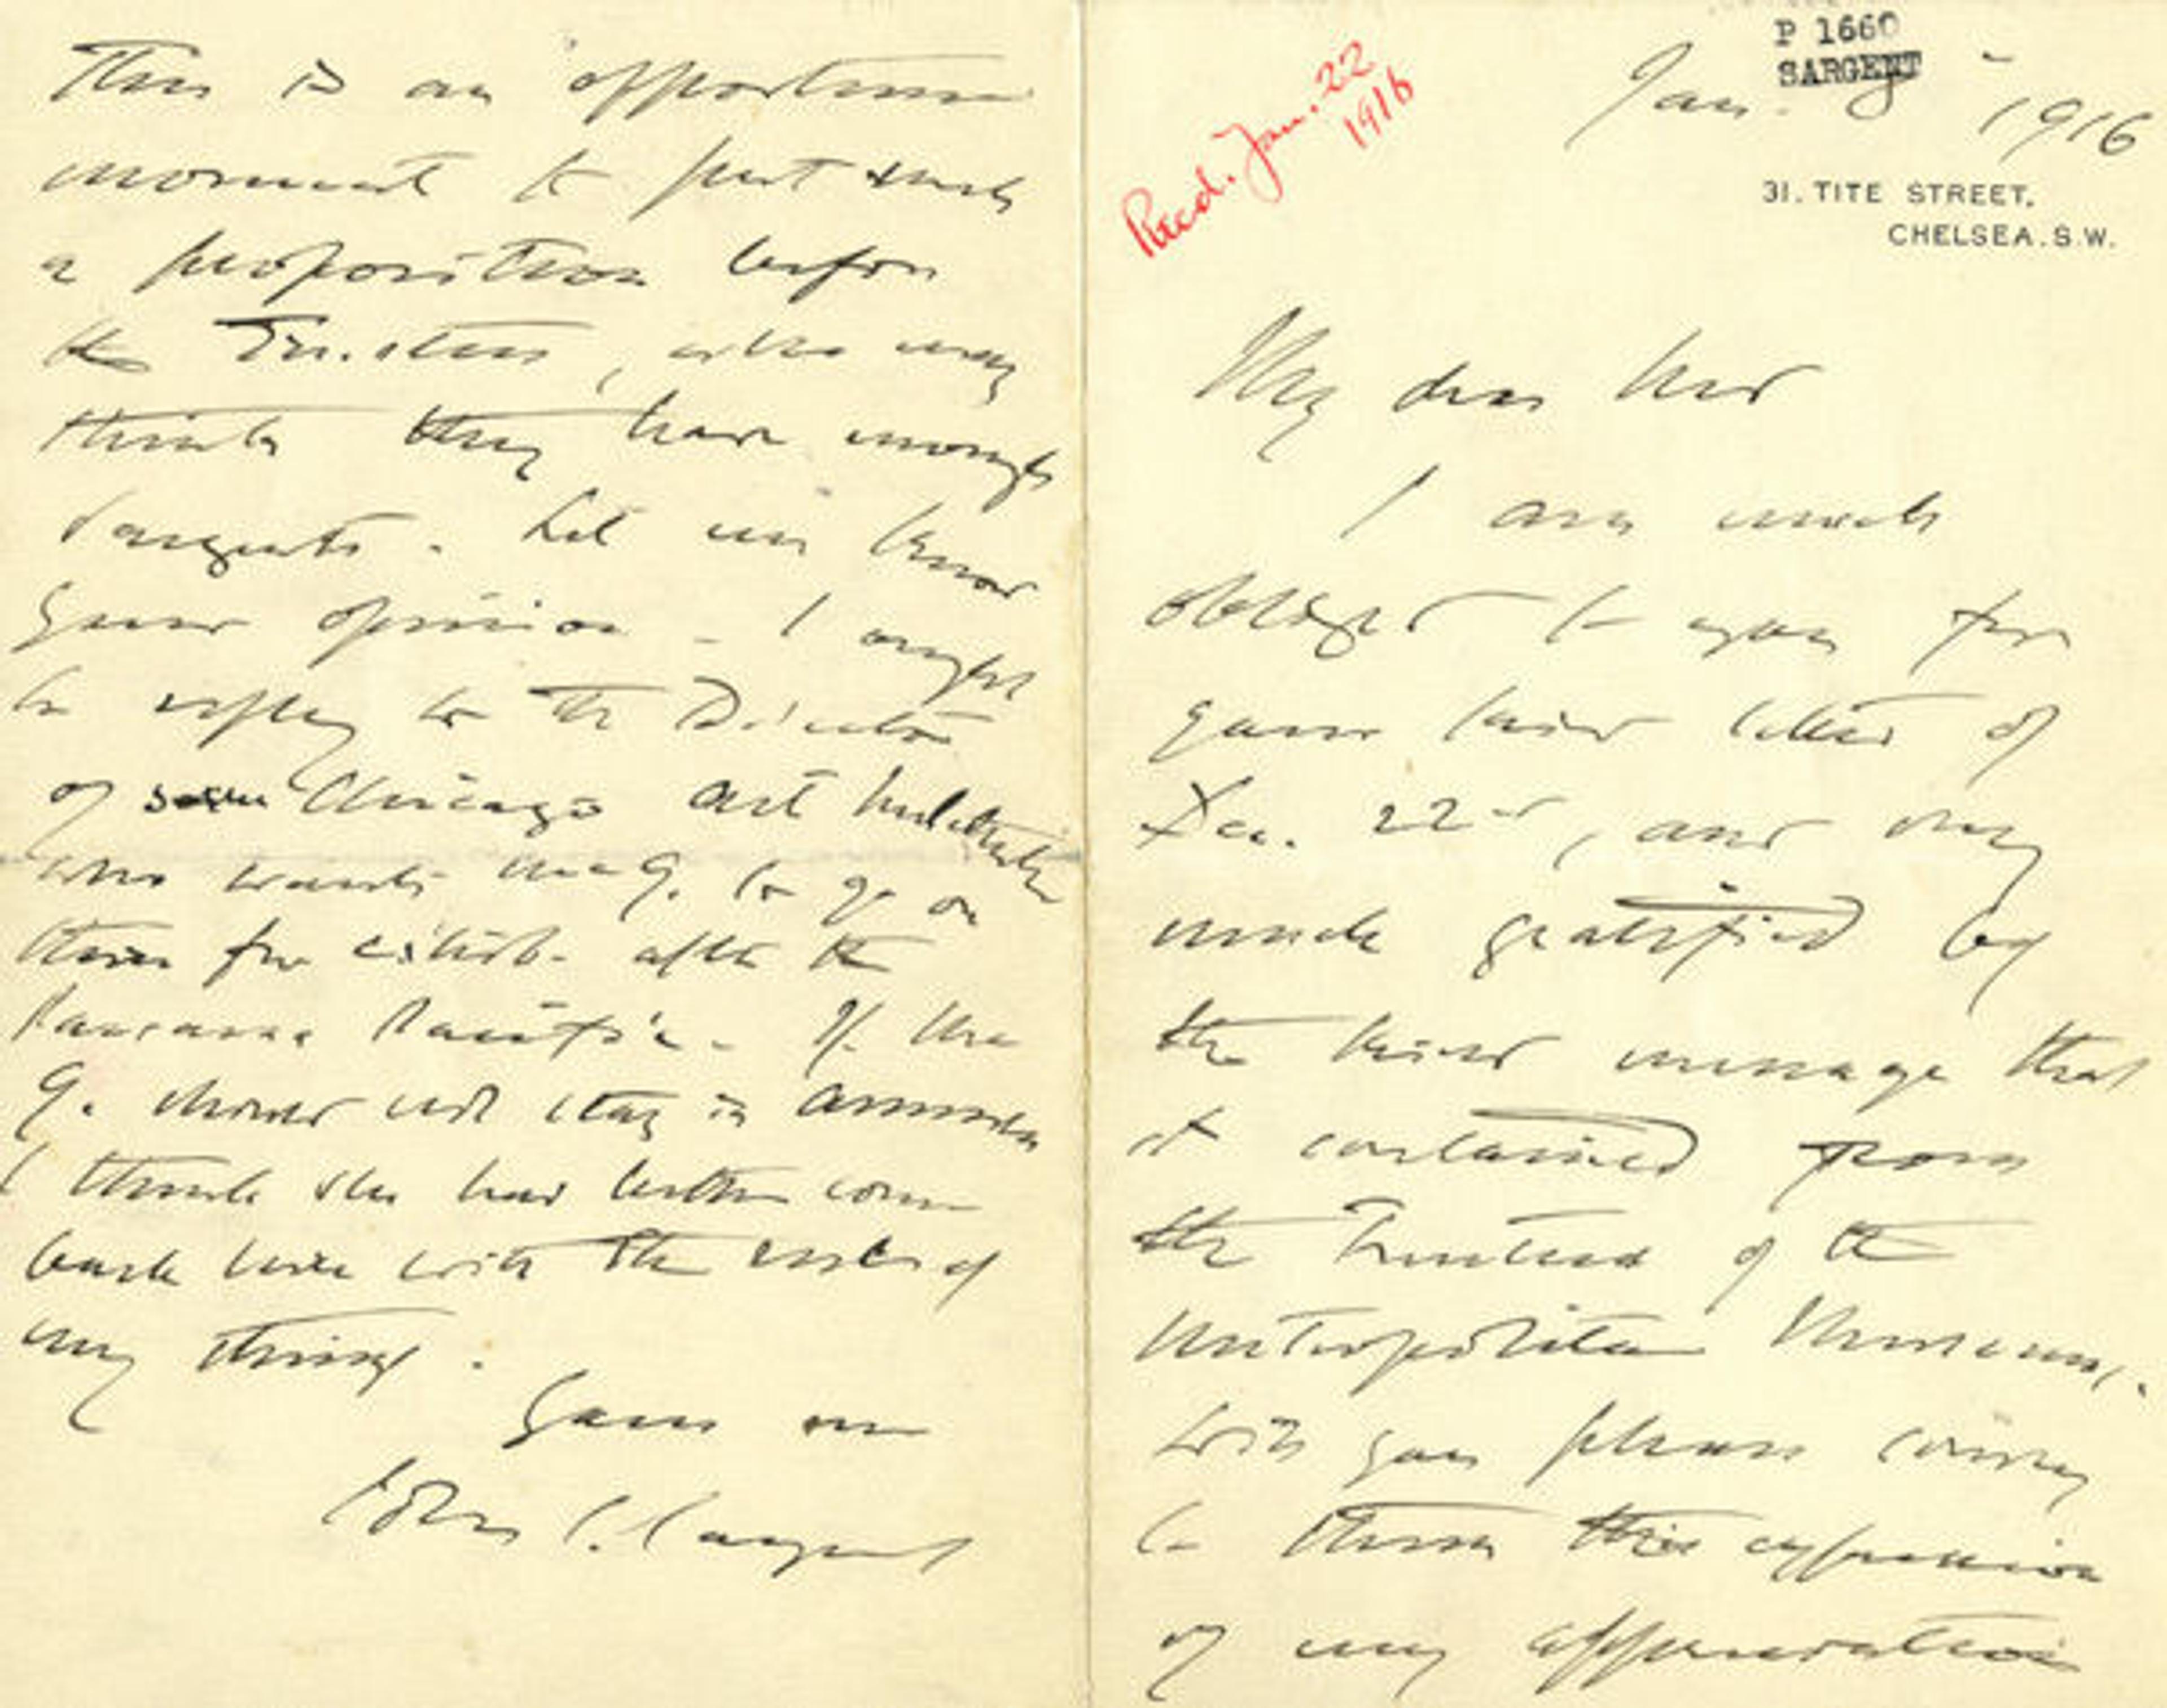 P 1660
SARGENT
Jan. 8 1916
Recd. Jan. 22
1916
31. TITE STREET.
CHELSEA. S.W.
My dear Ned
I am much
obliged to you for
your kind letter of
Dec. 22nd, and very
much gratified by
the kind message that
it contained from
the Trustees of the
Metropolitan Museum.
Will you please convey
to them this expression
of my appreciation
This is an opportune
moment to put such
a proposition before
the Trustees, who may
think they have enough
Sargents. Let me know
your opinion - I ought
to reply to the Director
of some Chicago art institution
who wants Mme G. to go on
there for exhib. after the
Panama Pacific. If Mme
G. should not stay in America
I think she had better come
back here with the rest of
my things.
Yours ever
John S. Sargent